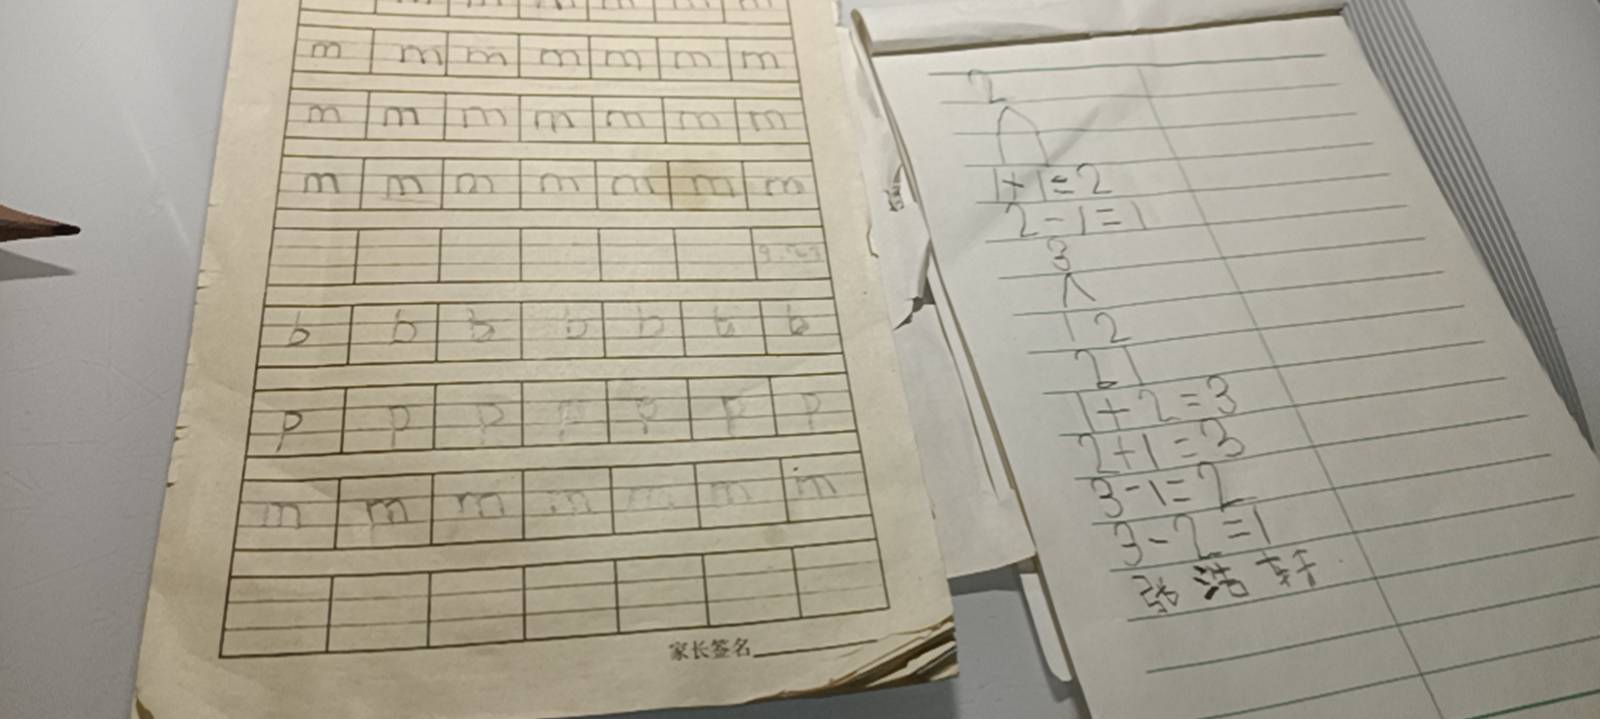 m m m m m m m
m m m m m m m
m m m m m m m
b b b b b b b
p p p p p p p
m m m m m m m
家长签名
2
1+1=2
2-1=1
3
1 2
2 1
1+2=3
2+1=3
3-1=2
3-2=1
张浩轩